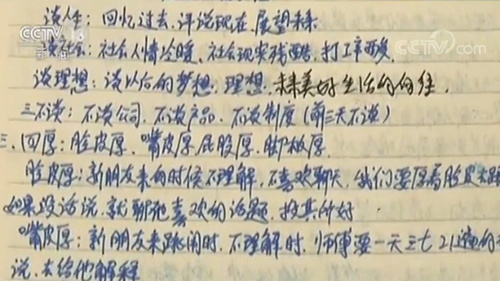 CCTV 13
CCTV.com
谈人生：回忆过去、评说现在、展望未来
谈社会：社会人情冷暖、社会现实残酷、打工辛酸
谈理想：谈以后的梦想、理想、未来美好生活的向往.
三不谈：不谈公司、不谈产品、不谈制度（前三天不谈）
三、四厚：脸皮厚、嘴皮厚、屁股厚、脚板厚.
脸皮厚：新朋友来的时候不理解、不喜欢聊天，我们要厚着脸皮去跟
如果没话说，就聊他喜欢的话题、投其所好.
嘴皮厚：新朋友来跳闹时、不理解时、师傅要一天三七21遍的
说、去给他解释